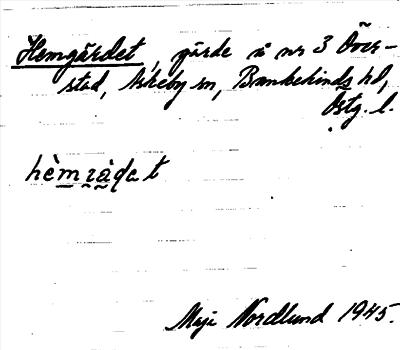 Hemgärdet, gärde å nr 3 Över-
stad, Askeby sn, Bankekinds hd,
Östg. l.
hèmɹàḍat
Maj Nordlund 1945.